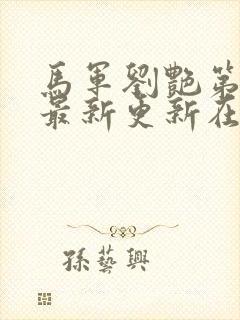 馬軍劉艷第
最新更新在
孫藝興